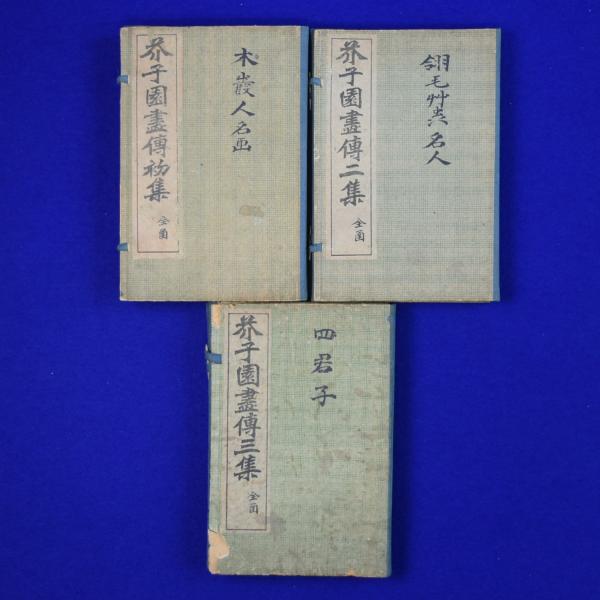 芥子園畫傳初集
全函
木山殿人名画
芥子園畫傳二集
全函
翎毛艸虫名人
芥子園畫傳三集
全函
四君子